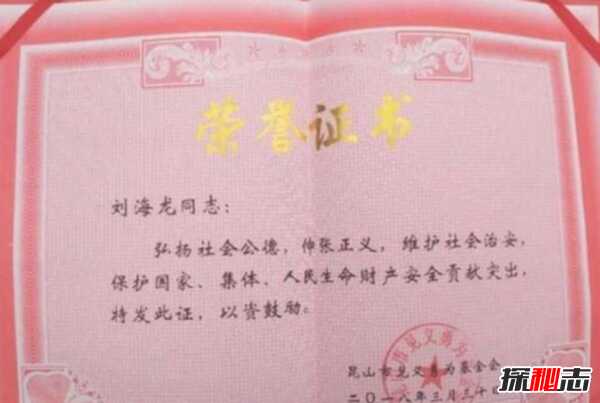 荣誉证书
刘海龙同志：
弘扬社会公德，伸张正义，维护社会治安，
保护国家、集体、人民生命财产安全贡献突出，
特发此证，以资鼓励。
昆山市见义勇为基金会
二〇一八年三月三十日
探秘志